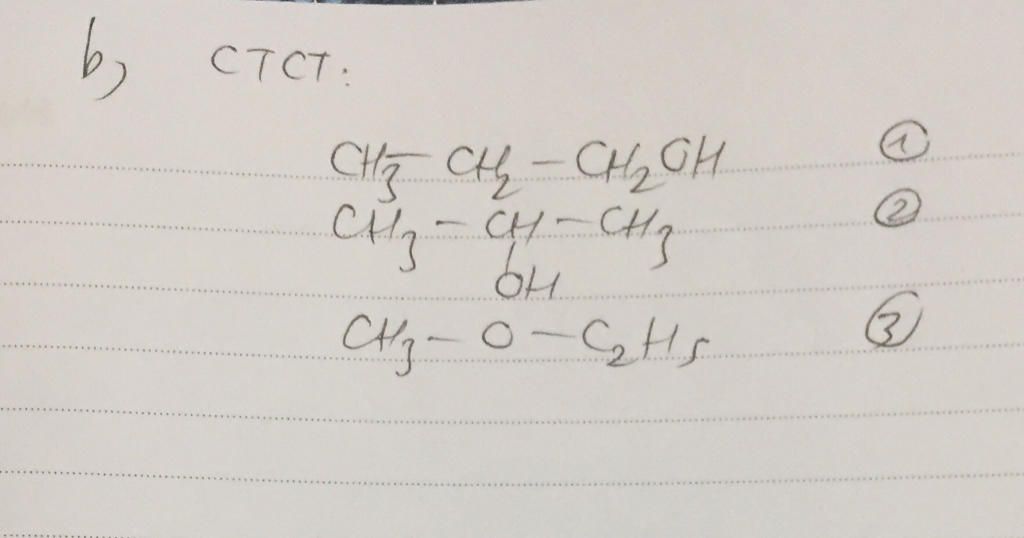 b, CTCT:
CH₃ – CH₂ – CH₂OH ①
CH₃ – CH – CH₃ ②
OH
CH₃ – O – C₂H₅ ③